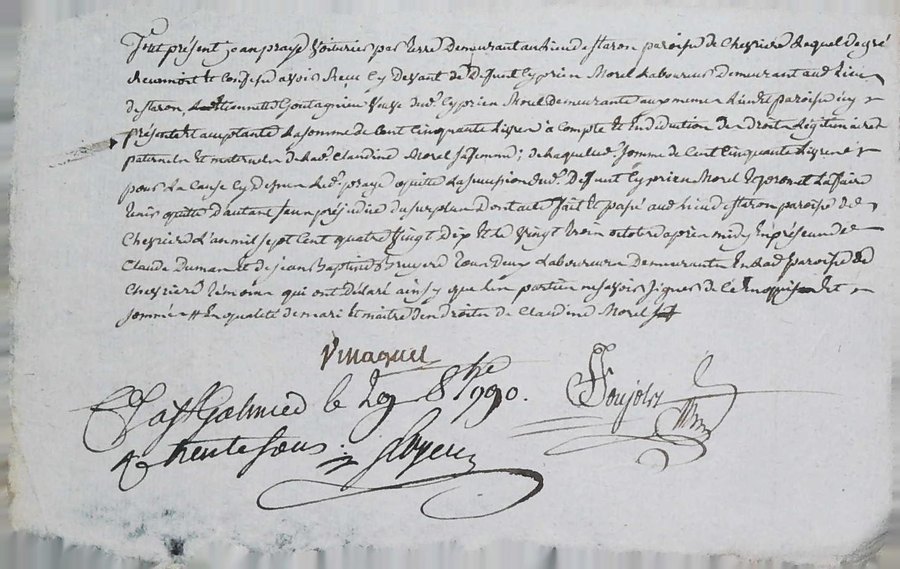 fut présent jean praye Voiturier par terre demeurant au lieu destaron paroisse de Chevriere Lequel de gré
Reconnoit et Confesse avoir Reçu Cy Devant de Defunt Cyprien Morel Laboureur Demeurant aud. Lieu
destaron, Etiennette Goutagnieu Veuve dud. Cyprien Morel demeurante aux meme Lieu et paroisse icy
présente et acceptante La somme de Cent Cinquante Livres à Compte et En diduction des droits Légitimaires
paternels et maternels de lad. Claudine Morel sa femme; de Laquelle somme de Cent Cinquante Livres
pour La Cause Cy Dessus led. praye quitte La succession dud. Defunt Cyprien Morel et promet La faire
tenir quitte d'autant sans préjudice du surplus Dont acte fait et passé aud. lieu destaron paroisse de
Chevriere L'an mil sept Cent quatre Vingt Dix et le Vingt trois octobre après midy En présence de
Claude Dumas et de jean Baptiste Bruyere tous Deux Laboureurs Demeurants En lad. paroisse de
Chevriere témoins qui ont Déclaré ainsy que Les parties ne savoir signer de Ce Enquis et
sommés # En qualité de mari et maitre des droits de Claudine Morel
Vmaquet
a St Galmier le 29 8bre 1790.
trente sous
Poujols